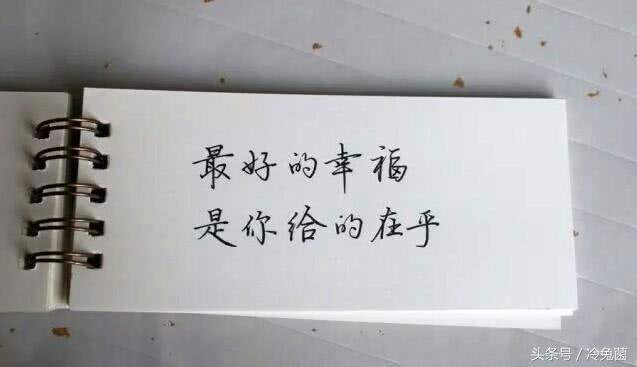 最好的幸福
是你给的在乎
头条号/冷兔菌